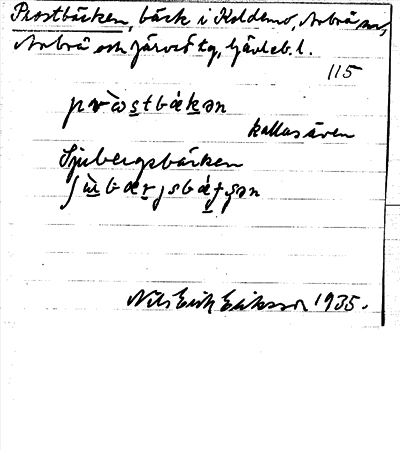 Prostbäcken, bäck i Koldemo, Arbrå sn,
Arbrå och Järvsö tg, Gävleb. l.
115
pròstbäkən
kallas även
Sjubergsbäcken
Nils Erik Eriksson 1935.